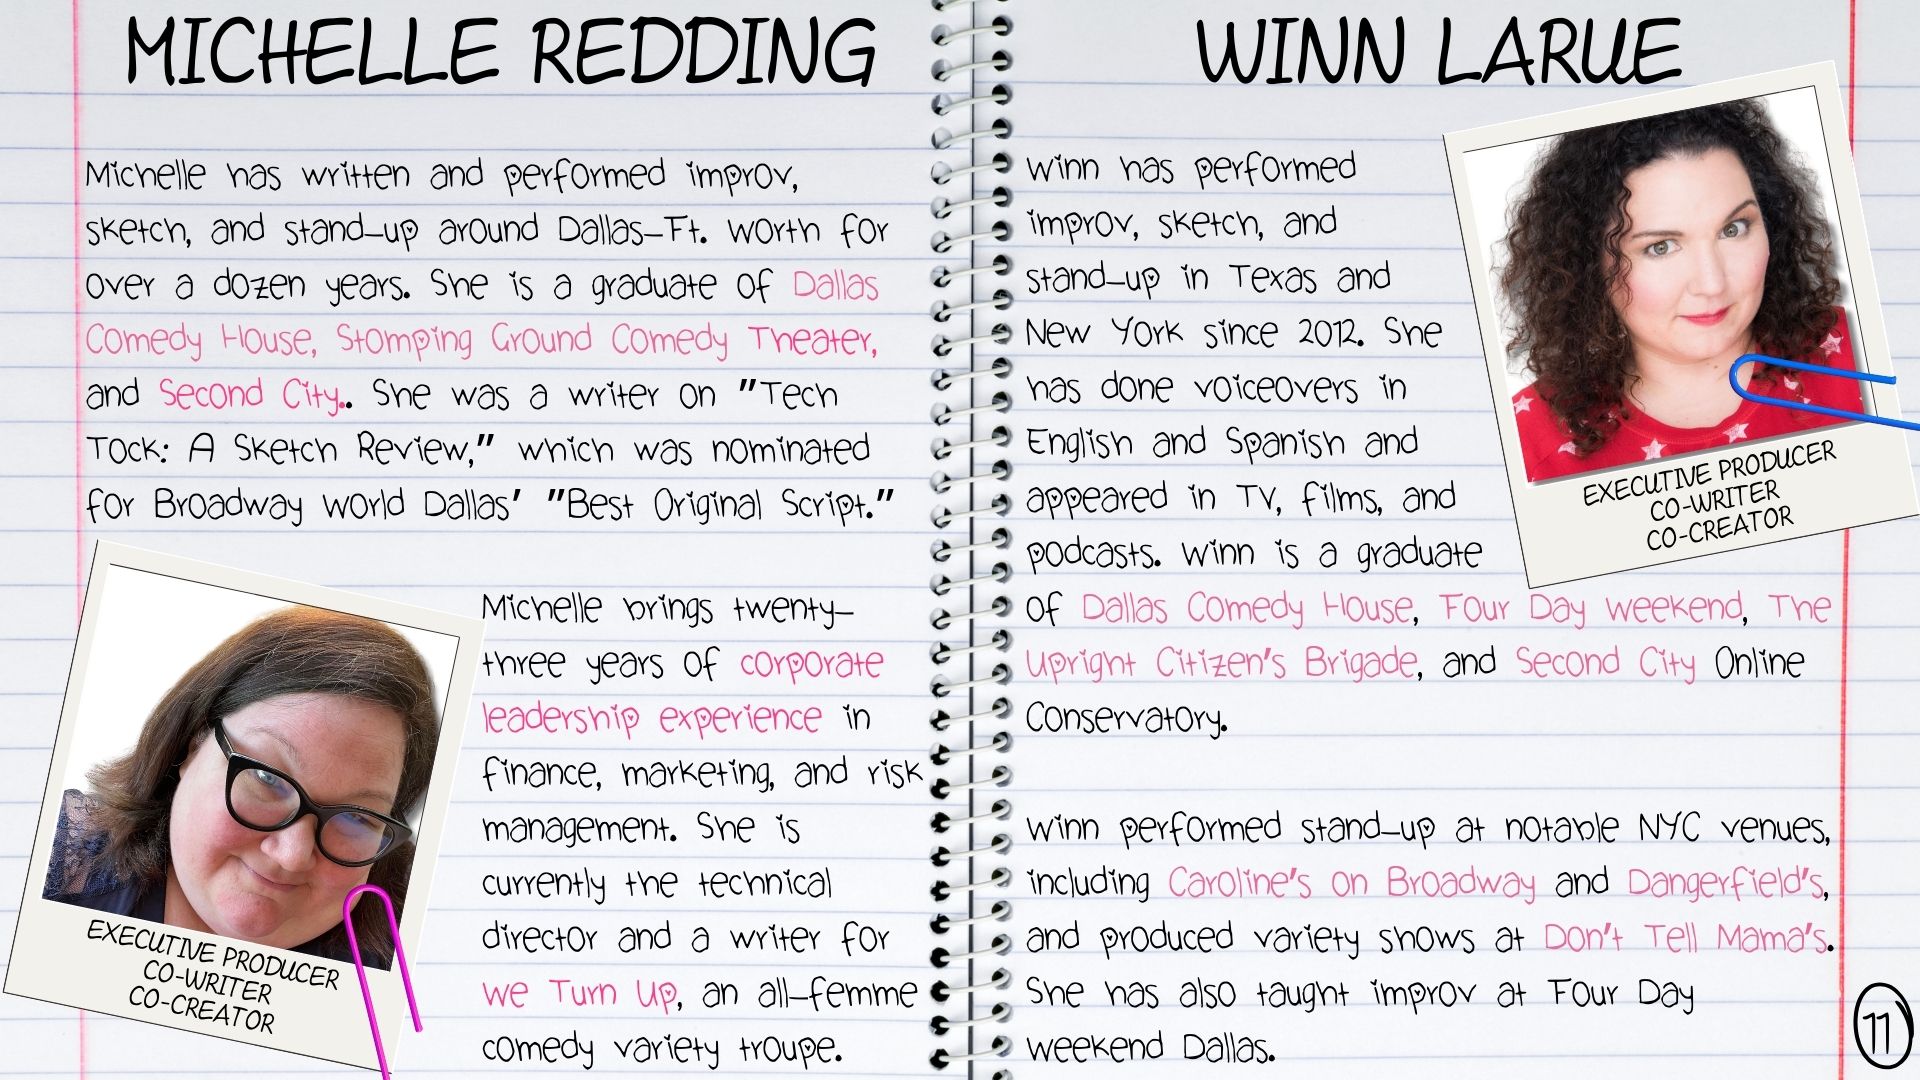 MICHELLE REDDING
Michelle has written and performed improv,
sketch, and stand-up around Dallas-Ft. Worth for
over a dozen years. She is a graduate of Dallas
Comedy House, Stomping Ground Comedy Theater,
and Second City.. She was a writer on "Tech
Tock: A Sketch Review," which was nominated
for Broadway World Dallas' "Best Original Script."
Michelle brings twenty-
three years of corporate
leadership experience in
finance, marketing, and risk
management. She is
currently the technical
director and a writer for
We Turn Up, an all-femme
comedy variety troupe.
EXECUTIVE PRODUCER
CO-WRITER
CO-CREATOR
WINN LARUE
Winn has performed
improv, sketch, and
stand-up in Texas and
New York since 2012. She
has done voiceovers in
English and Spanish and
appeared in TV, films, and
podcasts. Winn is a graduate
of Dallas Comedy House, Four Day Weekend, The
Upright Citizen's Brigade, and Second City Online
Conservatory.
Winn performed stand-up at notable NYC venues,
including Caroline's on Broadway and Dangerfield's,
and produced variety shows at Don't Tell Mama's.
She has also taught improv at Four Day
Weekend Dallas.
EXECUTIVE PRODUCER
CO-WRITER
CO-CREATOR
11